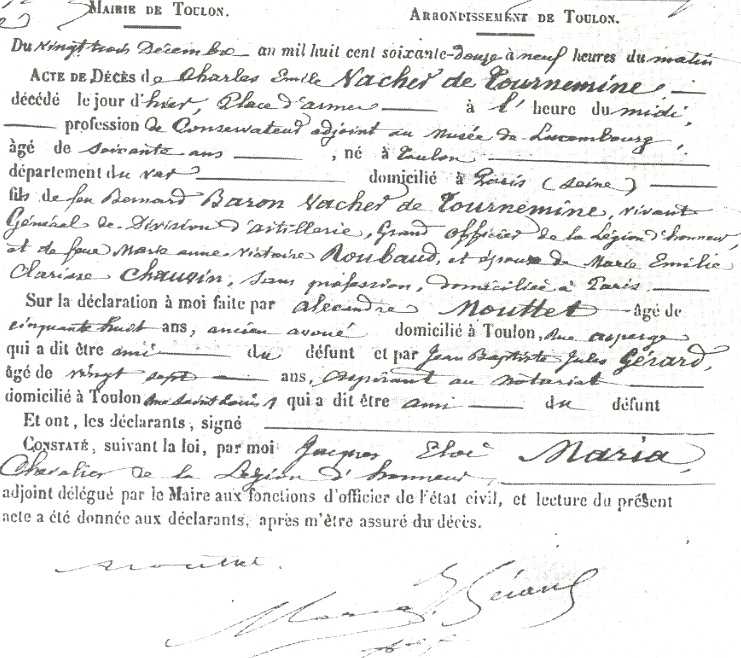 MAIRIE DE TOULON. ARRONDISSEMENT DE TOULON.
Du vingt trois Décembre an mil huit cent soixante-douze à neuf heures du matin
ACTE DE DÉCÈS de Charles Emile Vacher de Tournemine,
décédé le jour d'hier, Place d'armes à l'heure du midi,
profession de Conservateur adjoint au Musée du Luxembourg,
âgé de soixante ans, né à Toulon
département du var domicilié à Paris (Seine)
fils de feu Bernard Baron Vacher de Tournemine, vivant
Général de Division d'artillerie, Grand officier de la Légion d'honneur,
et de feue Marie anne Victoire Roubaud, et époux de Marie Emilie
Clarisse Chauvin, sans profession, domiciliée à Paris
Sur la déclaration à moi faite par alexandre Mouttet âgé de
cinquante huit ans, ancien avoué domicilié à Toulon, Rue asperge
qui a dit être ami du défunt et par Jean Baptiste Jules Gérard,
âgé de vingt sept ans, aspirant au notariat
domicilié à Toulon Rue Saint Louis qui a dit être ami du défunt
Et ont, les déclarants, signé
CONSTATÉ, suivant la loi, par moi Jacques Eloi Maria,
Chevalier de la Légion d'honneur,
adjoint délégué par le Maire aux fonctions d'officier de l'état civil, et lecture du présent
acte a été donnée aux déclarants, après m'être assuré du décès.
Mouttet
Maria J. Gérard